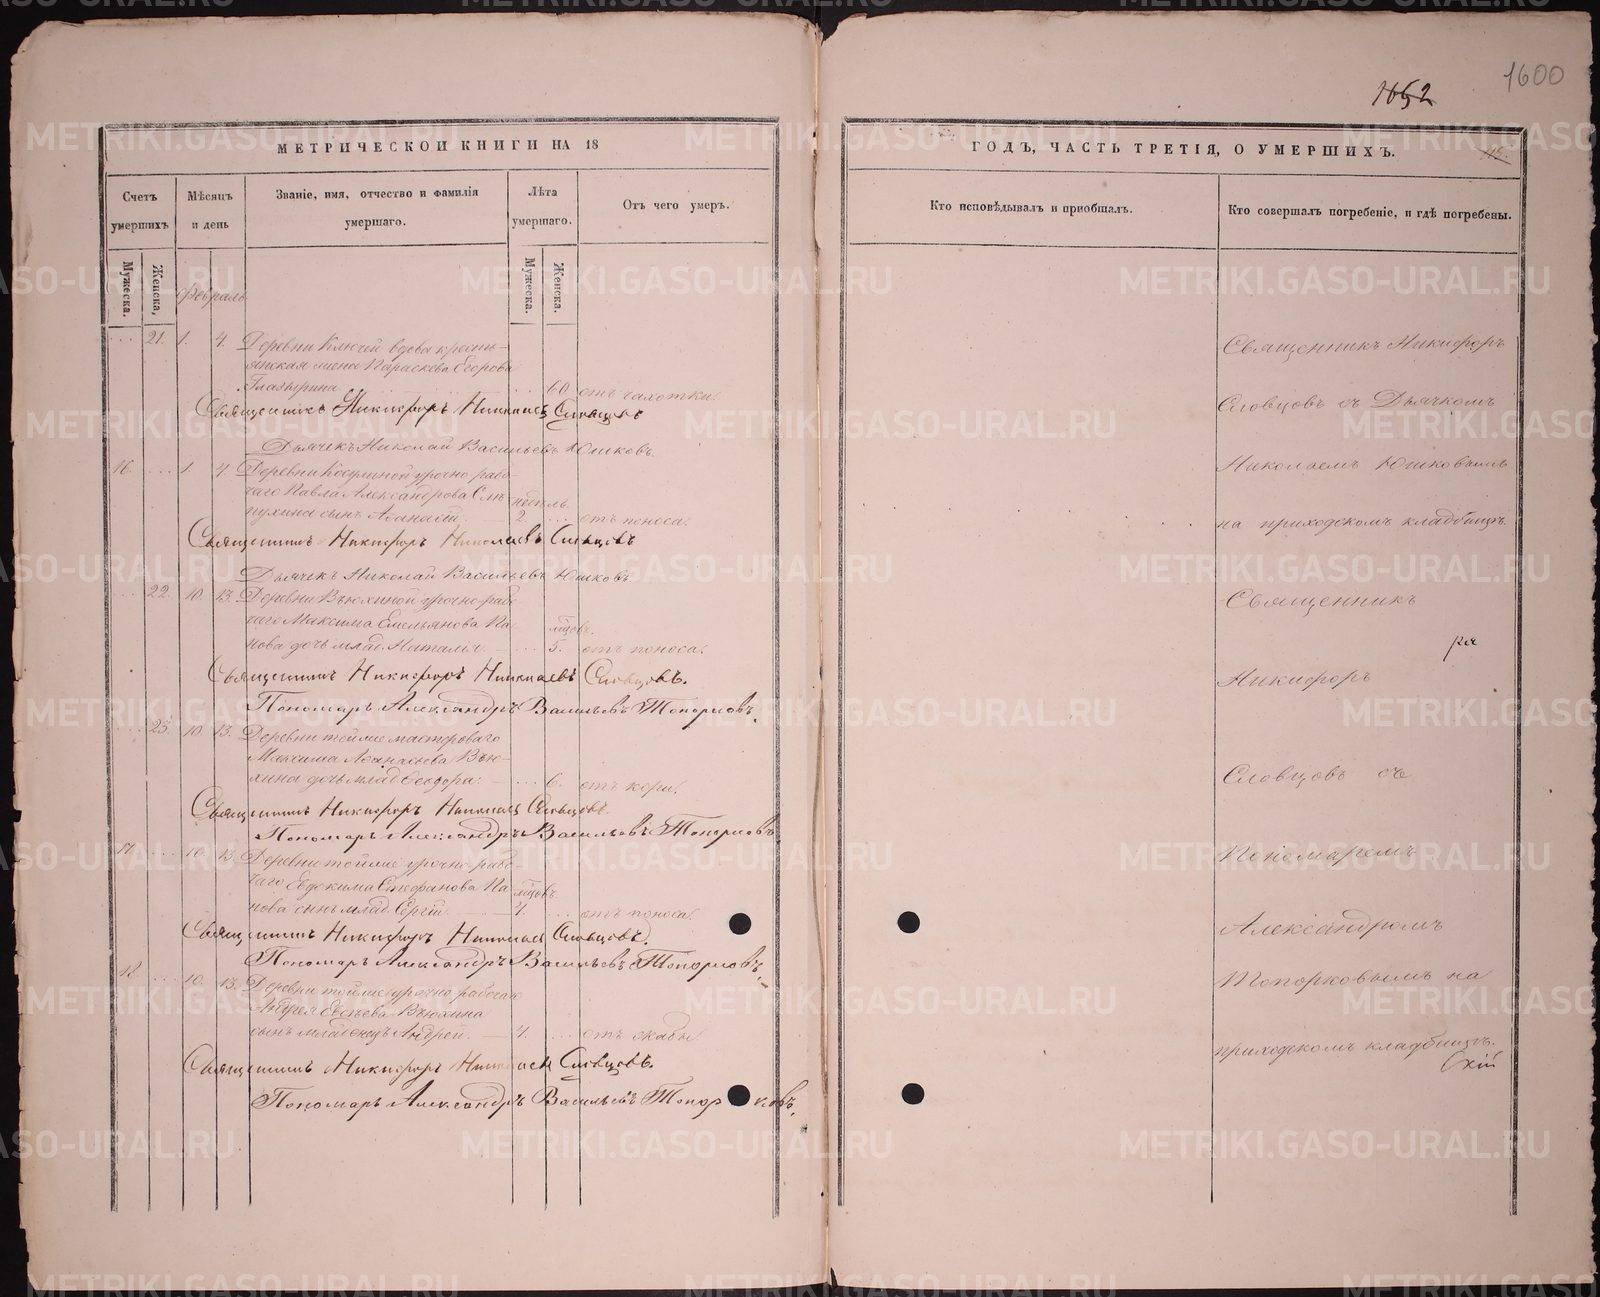 1652
1600
МЕТРИЧЕСКОЙ КНИГИ НА 18
Счетъ умершихъ
Мѣсяцъ и день
Званіе, имя, отчество и фамилія умершаго.
Лѣта умершаго.
Отъ чего умеръ.
Мужеска.
Женска.
Мужеска.
Женска.
Февраль
21. 1. 4. Деревни Ключей вдова крестьянская жена Параскева Егорова
60 отъ чахотки.
Священникъ Никифоръ Николаевъ Словцовъ
Дьячекъ Николай Васильевъ Юшковъ.
16. 1. 4. Деревни Косулиной урочно рабо-
чаго Павла Александрова
недѣль
сынъ Афанасій. 2. отъ поноса.
Священникъ Никифоръ Николаевъ Словцовъ
Дьячекъ Николай Васильевъ Юшковъ
22. 10. 13. Деревни Вьюхиной урочно рабо-
чаго Максима Емельянова Па-
мѣсцовъ.
нова дочь млад. Наталья. 5. отъ поноса.
Священникъ Никифоръ Николаевъ Словцовъ.
Пономарь Александръ Васильевъ Топорковъ.
23. 10. 13. Деревни тойже мастероваго
Максима Афанасьева Вью-
хина дочь млад. Феодора. 6. отъ кори.
Священникъ Никифоръ Николаевъ Словцовъ.
Пономарь Александръ Васильевъ Топорковъ
17. 10. 13. Деревни тойже урочно рабо-
чаго Евдокима Стефанова Па-
нова сынъ млад. Сергій. 4. отъ поноса.
Священникъ Никифоръ Николаевъ Словцовъ.
Пономарь Александръ Васильевъ Топорковъ.
18. 10. 13. Деревни тойже урочно рабочаго
Андрея Евсѣева Вьюхина
сынъ младенецъ Андрей. 4. отъ жабы.
Священникъ Никифоръ Николаевъ Словцовъ.
Пономарь Александръ Васильевъ Топорковъ.
ГОДЪ, ЧАСТЬ ТРЕТІЯ, О УМЕРШИХЪ.
Кто исповѣдывалъ и пріобщалъ.
Кто совершалъ погребеніе, и гдѣ погребены.
Священникъ Никифоръ
Словцовъ съ Дьячкомъ
Николаемъ Юшковымъ
на приходскомъ кладбищѣ.
Священникъ
Никифоръ
Словцовъ съ
Пономаремъ
Александромъ
Топорковымъ на
приходскомъ кладбищѣ.
METRIKI.GASO-URAL.RU